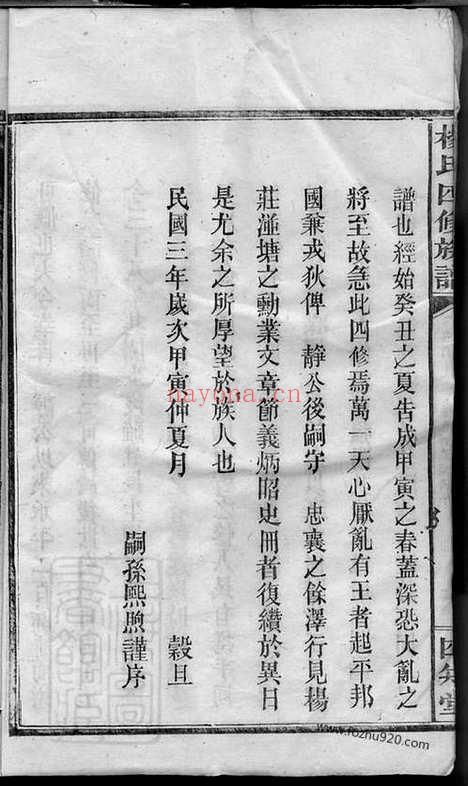 楊氏四修族譜
四知堂
譜也經始癸丑之夏告成甲寅之春蓋深恐大亂之
將至故急此四修焉萬一天心厭亂有王者起平邦
國兼戎狄俾　靜公後嗣守　忠襄之餘澤行見楊
莊湴塘之勳業文章節義炳昭史冊者復續於異日
是尤余之所厚望於族人也
民國三年歲次甲寅仲夏月　穀旦
嗣孫熙煦謹序
nayona.cn
www.fozhu920.com